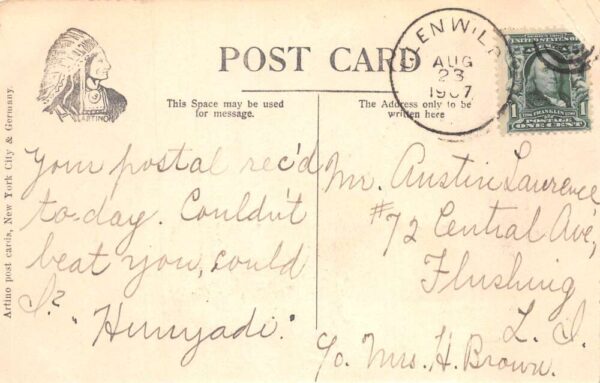 POST CARD
ARTINO
This Space may be used
for message.
The Address only to be
written here
GLENWILD
AUG
23
1907
FRANKLIN
POSTAGE
1 ONE CENT 1
Artino post cards, New York City & Germany.
Your postal rec'd
to-day. Couldn't
beat you, could
I? "Hunyadi."
Mr. Austin Lawrence
#72 Central Ave,
Flushing
L. I.
c/o Mrs. H. Brown.